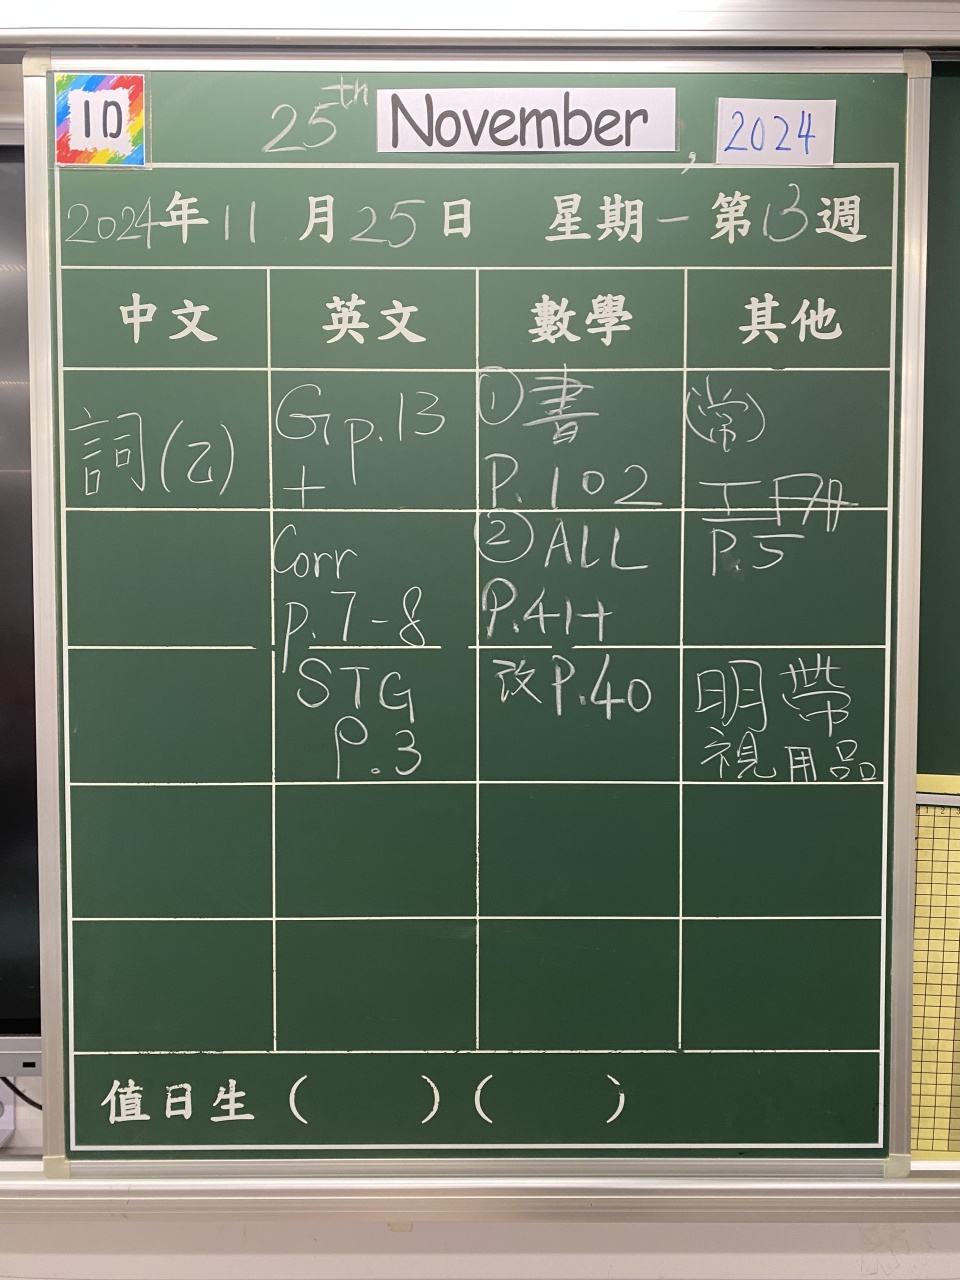 1D
25th November, 2024
2024年11月25日 星期一 第13週
中文 英文 數學 其他
詞(乙)
G p.13
+
Corr
p.7-8
STG
P.3
①書
P.102
②ALL
P.41+
改P.40
(常)
工冊
P.5
明帶
視用品
值日生 ( ) ( )
1 2 3